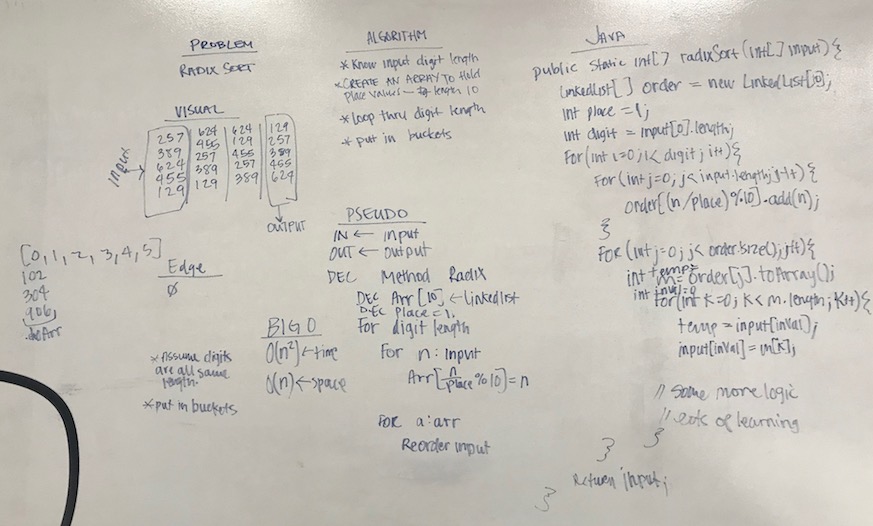 PROBLEM
RADIX SORT
VISUAL
INPUT
257 624 624 129
389 455 129 257
624 257 455 389
455 389 257 455
129 129 389 624
OUTPUT
[0, 1, 2, 3, 4, 5]
102
304
906
.toArr
Edge
Ø
BIG O
O(n²) ← time
O(n) ← space
* Assume digits
are all same
length.
* put in buckets
ALGORITHM
* Know input digit length
* CREATE AN ARRAY TO Hold
Place values – length 10
* loop thru digit length
* put in buckets
PSEUDO
IN ← input
OUT ← output
DEC Method Radix
DEC Arr [10] ← linkedlist
DEC Place = 1.
For digit length
For n: Input
Arr[n/place %10] = n
FOR a:arr
Reorder input
JAVA
public static int[] radixSort (int[] input) {
LinkedList[] order = new LinkedList[10];
int place = 1;
int digit = input[0].length;
For(int i=0; i< digit; i++){
For (int j=0; j< input.length; j++) {
order[(n/place)%10].add(n);
}
For (int j=0; j< order.size(); j++){
int temp=
m= order[j].toArray();
int inVal=0
for(int K=0; K< m.length; K++){
temp = input[inVal];
input[inVal] = m[K];
// Some more logic
// lots of learning
}
}
Return input;
}